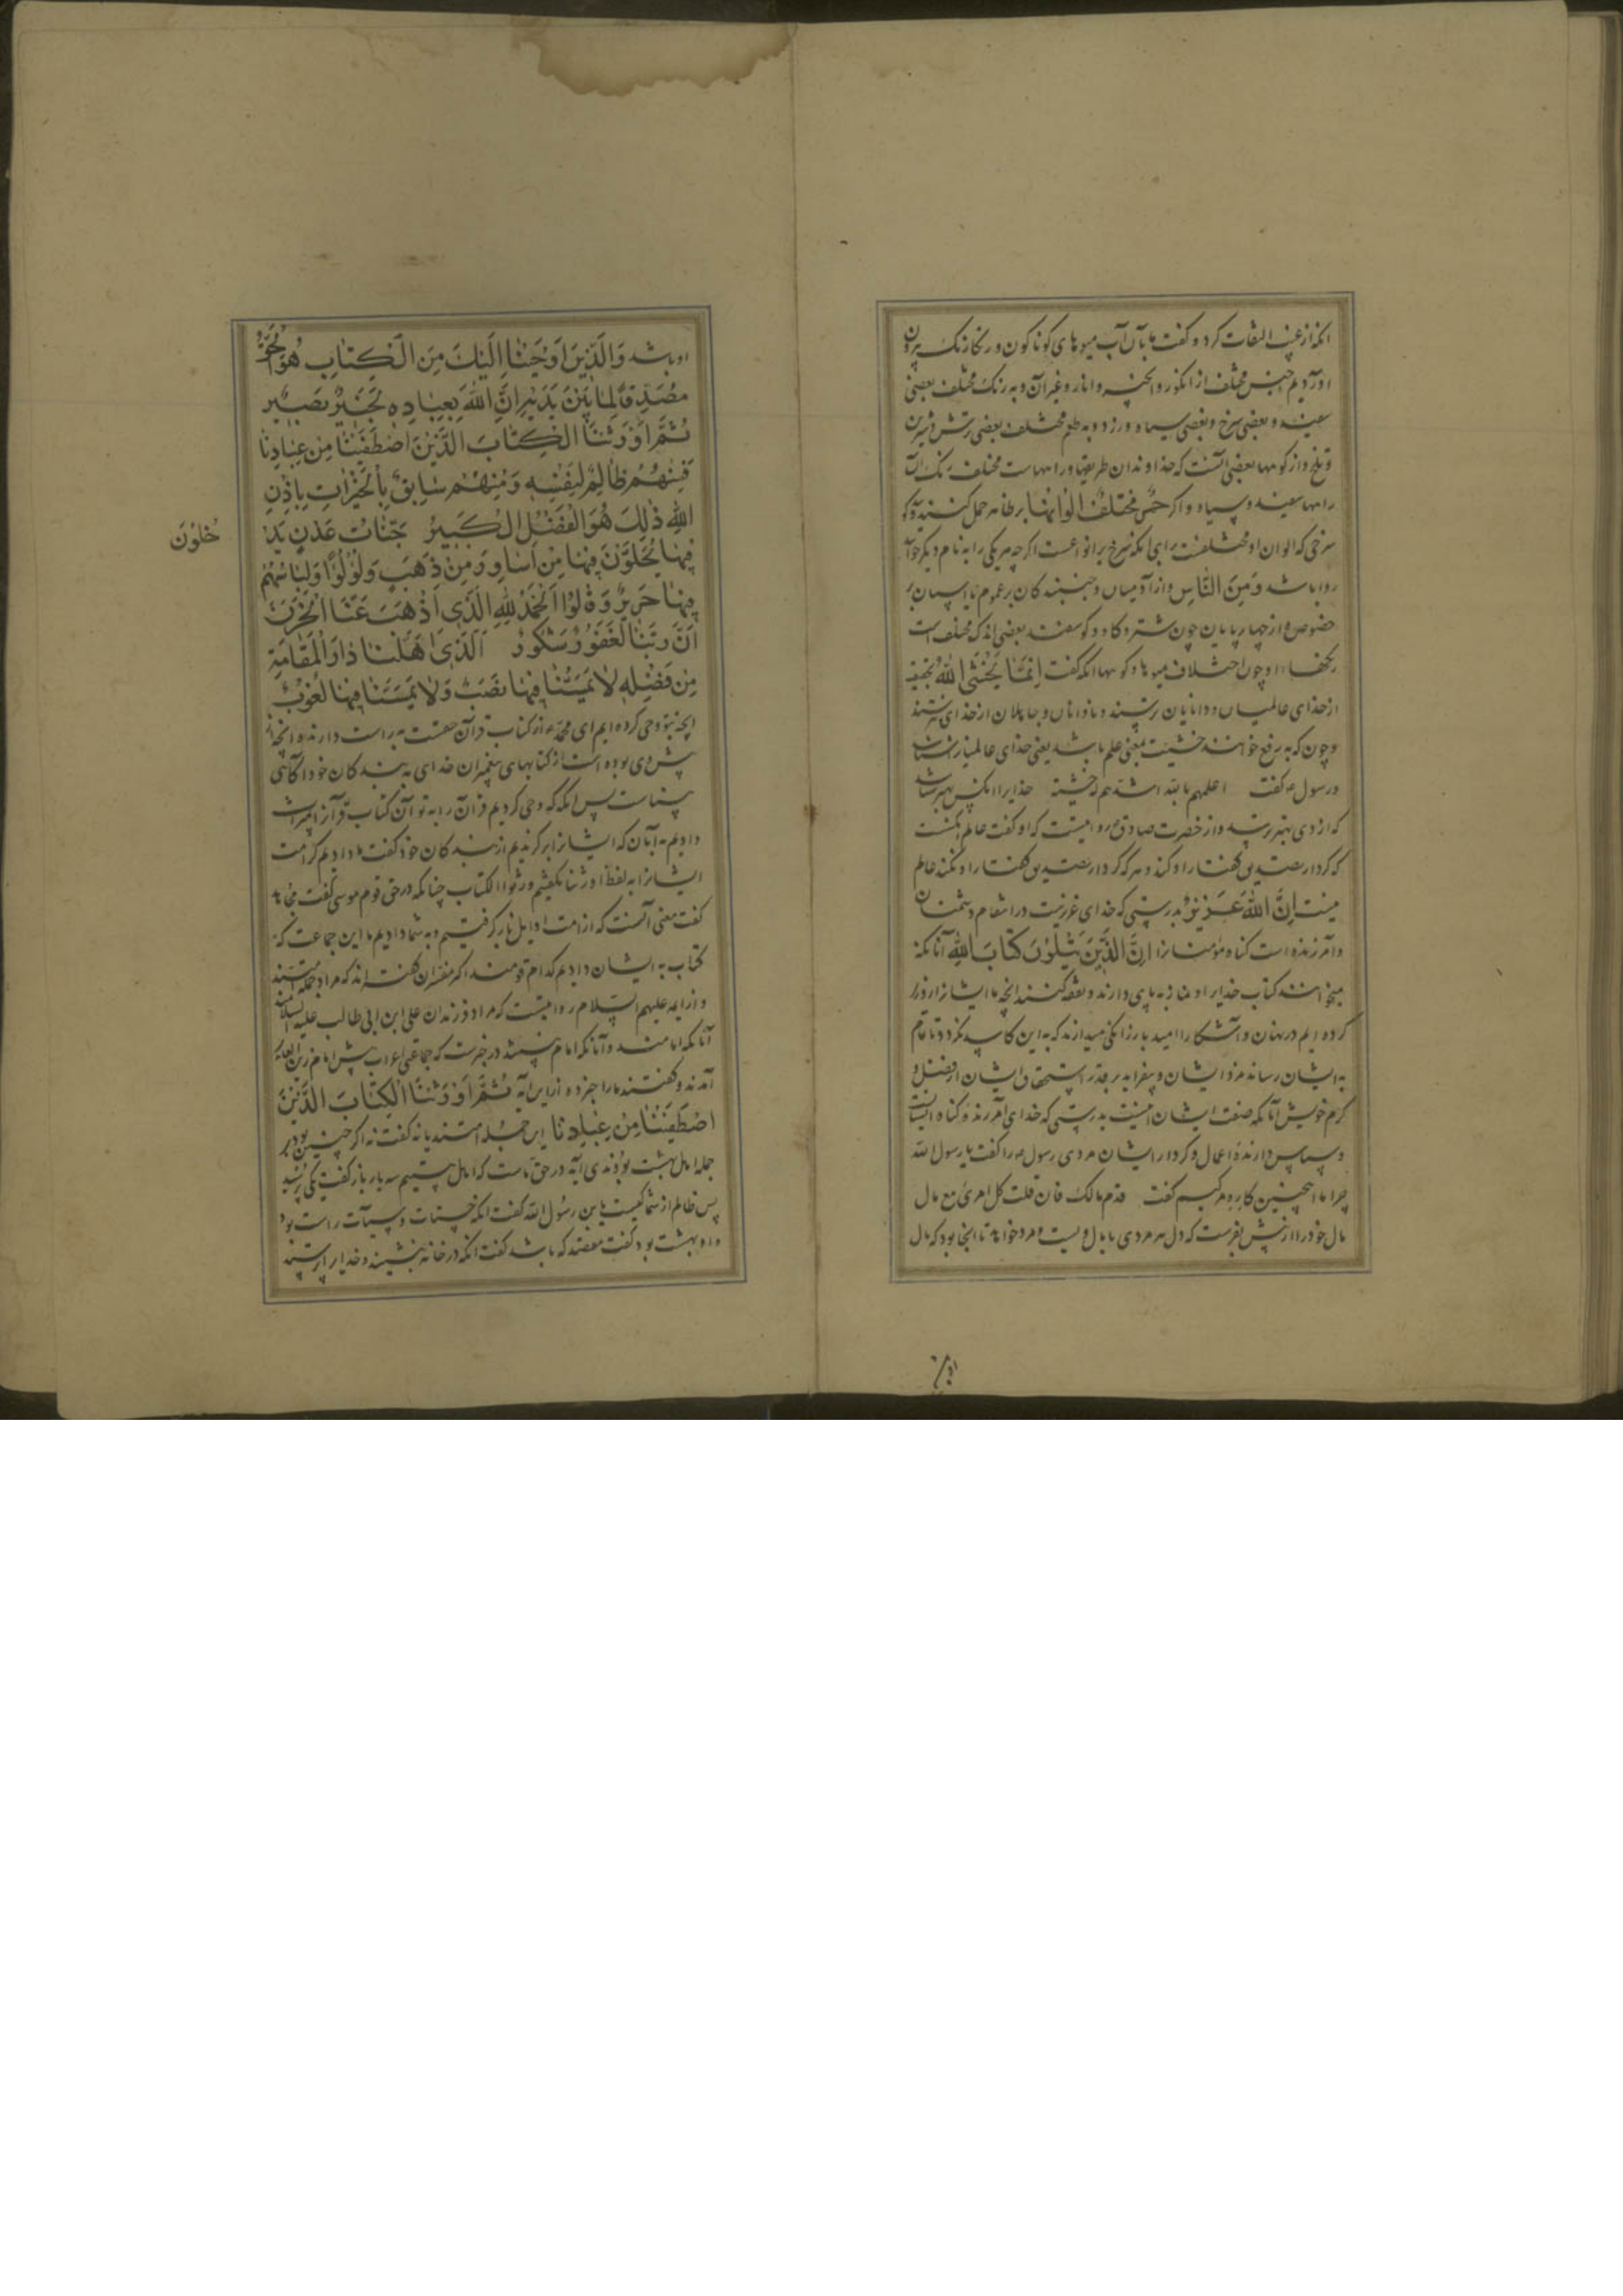 انکه از غیب التفات کرد و گفت ما بآن آب میوهای کوناکون و رنکارنک بیرون
اوردیم اجنس مختلف از انکور و انجیر و انار و غیر آن و به رنک مختلف بعضی
سفیند و بعضی سرخ و بعضی سیاه و زرد و به طعم مختلف بعضی ترش و شیرین
و تلخ و از کوهها بعضی آنست که خداوندان طریقها و راههاست مختلف رنک آن
راهها سفیند و سیاه و اکر حُمْرٌ مُخْتَلِفٌ اَلْوَانُهَا بر ظاهر حمل کنند
سرخی که الوان او مختلفست برای انکه سرخ بر انواعست اکرچه هر یکی را به نام دیکر خوانند
روا باشد وَمِنَ النَّاسِ و از آدمیان و جنبندکان بر عموم
خصوص از چهارپایان چون شتر و کاو و کوسفند بعضی اند که مختلف است
رنکها او چون اختلاف میوها و کوهها انکه گفت اِنَّمَا يَخْشَى اللّٰهَ
از خدای عالمیان و دانایان ترسند و نادانان و جاهلان از خدای نترسند
و چون که به رفع خوانند خشیت بمعنی علم باشد یعنی خدای عالمیانرا شناسند
و رسول ع گفت اعلمهم بالله اشدهم له خشیة خدایرا انکس بهتر شناسد
که از وی بهتر ترسد و از حضرت صادق ع روایتست که او گفت عالم انکست
که کردار تصدیق گفتار او کند و هر که کردار تصدیق گفتار او نکند عالم
نیست اِنَّ اللّٰهَ عَزِيزٌ بدرستی که خدای عزیزست در انتقام دشمنان
و آمرزنده است کناه مؤمنانرا اِنَّ الَّذِينَ يَتْلُونَ كِتَابَ اللّٰهِ آنانکه
میخوانند کتاب خدایرا و نماز به پای دارند و نفقه کنند انچه ما ایشانرا روزی
کرده ایم در نهان و آشکارا امید بازرکانی میدارند که به این کاسد نکردد تا تمام
به ایشان رساند مزد ایشان و بیفزاید بر قدر استحقاق ایشان از فضل و
کرم خویش آنانکه صفت ایشان اینست بدرستی که خدای آمرزنده کناه ایشانست
و سپاس دارنده اعمال و کردار ایشان مردی رسول را گفت یا رسول الله
چرا ما انچنین کاره مرکیم گفت قدم مالک فان قلب کل امرئ مع مال
مال خود را از پیش بفرست که دل هر مردی با مال ویست و مرد خواهد تا انجا بود که مال
او باشد وَالَّذِينَ اَوْحَيْنَا اِلَيْكَ مِنَ الْكِتَابِ هُوَ الْحَقُّ
مُصَدِّقًا لِمَا بَيْنَ يَدَيْهِ اِنَّ اللّٰهَ بِعِبَادِهِ لَخَبِيرٌ بَصِيرٌ
ثُمَّ اَوْرَثْنَا الْكِتَابَ الَّذِينَ اصْطَفَيْنَا مِنْ عِبَادِنَا
فَمِنْهُمْ ظَالِمٌ لِنَفْسِهِ وَمِنْهُمْ سَابِقٌ بِالْخَيْرَاتِ بِاِذْنِ
اللّٰهِ ذٰلِكَ هُوَ الْفَضْلُ الْكَبِيرُ جَنَّاتُ عَدْنٍ يَدْ
خُلُونَ
فِيهَا يُحَلَّوْنَ فِيهَا مِنْ اَسَاوِرَ مِنْ ذَهَبٍ وَلُؤْلُؤًا وَلِبَاسُهُمْ
فِيهَا حَرِيرٌ وَقَالُوا الْحَمْدُ لِلّٰهِ الَّذِي اَذْهَبَ عَنَّا الْحَزَنَ
اِنَّ رَبَّنَا لَغَفُورٌ شَكُورٌ اَلَّذِي اَحَلَّنَا دَارَ الْمُقَامَةِ
مِنْ فَضْلِهِ لَا يَمَسُّنَا فِيهَا نَصَبٌ وَلَا يَمَسُّنَا فِيهَا لُغُوبٌ
انچه بتو وحی کرده ایم ای محمد ع از کتاب قرآن حقست به راست دارنده انچه از
پیش وی بوده است از کتابهای پیغمبران خدای به بندکان خود آکاهی
بیناست پس انکه که وحی کردیم قرآن را به تو آن کتاب قرآنرا میراث
دادیم به آنان که ایشانرا برکزیدیم از بندکان خود گفت ما دادیم کرامت
ایشانرا به لفظ اورثنا نکفتیم ورثوا الکتاب چنانکه در حق قوم موسی گفت مجاهد
گفت معنی آنست که از امت اوایل باز کرفتیم و به شما دادیم ما این جماعت که
کتاب به ایشان دادیم کدام قومند اکثر مفسران گفته اند که مراد جمله امتند
و از ایمه علیهم السلام روایتست که مراد فرزندان علی ابن ابی طالب علیه السلامند
آنانکه امامند و آنانکه امام نیستند در خبرست که جماعتی اعراب پیش امام زین العابد
آمدند و گفتند ما را خبر ده از این آیه ثُمَّ اَوْرَثْنَا الْكِتَابَ الَّذِينَ
اصْطَفَيْنَا مِنْ عِبَادِنَا این جمله امتند یا نه گفت نه اکر چنین بودی
جمله اهل بهشت بودندی آیه در حق ماست که اهل بیتیم سه بار باز گفت یکی پرسید
پس ظالم از شما کیست یابن رسول الله گفت انکه حسنات و سیئات راست بود
و او بهشت بود گفت مقتصد که باشد گفت انکه در خانه بنشیند و خدایرا پرستد